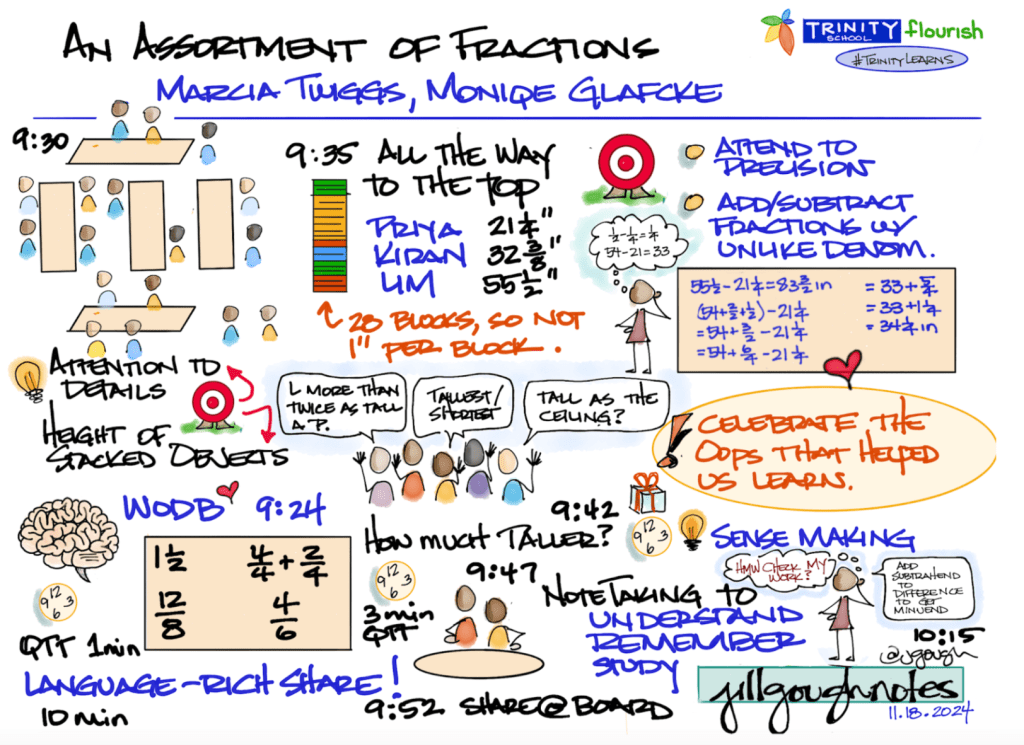 AN ASSORTMENT OF FRACTIONS
MARCIA TWIGGS, MONIQE GLAFCKE
TRINITY
SCHOOL
flourish
#TRINITYLEARNS
9:30
9:35 ALL THE WAY
TO THE TOP
PRIYA 21 1/4"
KIRAN 32 3/8"
LIM 55 1/2"
28 BLOCKS, SO NOT
1" PER BLOCK.
ATTEND TO
PRECISION
ADD/SUBTRACT
FRACTIONS W/
UNLIKE DENOM.
1/2 - 1/4 = 1/4
54 - 21 = 33
55 1/2 - 21 1/4 = 83 in
- 21 1/4
= 54 + - 21 1/4
= 54 + - 21 1/4
= 33 + 5/4
= 33 + 1 1/4
= 34 1/4 in
ATTENTION TO
DETAILS
HEIGHT OF
STACKED OBJECTS
L MORE THAN
TWICE AS TALL
A P.
TALLEST/
SHORTEST
TALL AS THE
CEILING?
CELEBRATE THE
OOPS THAT HELPED
US LEARN.
WODB 9:24
1 1/2
4/4 + 2/4
12/8
4/6
12
3
6
QTT 1min
LANGUAGE-RICH SHARE!
10 min
9:42
HOW MUCH TALLER?
12
3
6
3 min
QTT
9:47
9:52 SHARE@BOARD
12
3
6
SENSE MAKING
HMW CHECK MY
WORK?
ADD
SUBTRAHEND
TO
DIFFERENCE
TO GET
MINUEND
NOTETAKING TO
UNDERSTAND
REMEMBER
STUDY
10:15
@jgough
jillgoughnotes
11.18.2024